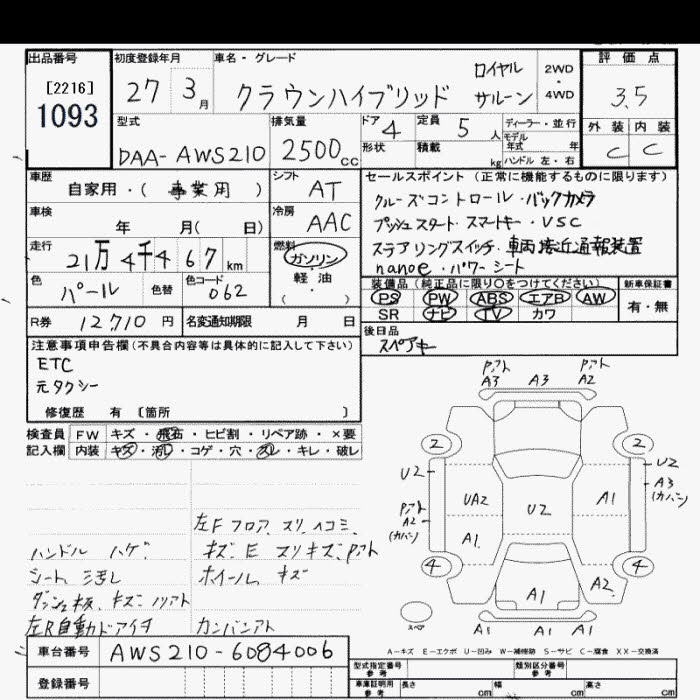 出品番号
[2216]
1093
初度登録年月
27 3月
車名・グレード
クラウンハイブリッド
ロイヤル
サルーン
2WD
・
4WD
評価点
3.5
型式
DAA-AWS210
排気量
2500cc
ドア
4
定員
5人
形状
積載
kg
ディーラー・並行
モデル
年式 年
ハンドル 左・右
外装 内装
C C
車歴
自家用・( 事業用 )
シフト
AT
車検
年 月( 日)
冷房
AAC
走行
21万4千467km
燃料
ガソリン
・
軽油
( )
色
パール
色替
色コード
062
R券 12710円
名変通知期限 月 日
セールスポイント(正常に機能するものに限ります)
クルーズコントロール・バックカメラ
プッシュスタート・スマートキー・VSC
ステアリングスイッチ・車両接近通報装置
nanoe・パワーシート
装備品(純正品に限り○をつけてください)
新車保証書
PS PW ABS エアB AW
SR ナビ TV カワ
有・無
後日品
スペアキー
注意事項申告欄(不具合内容等は具体的に記入して下さい)
ETC
元タクシー
修復歴 有〔箇所 〕
検査員
記入欄
FW キズ・飛石・ヒビ割・リペア跡・×要
内装 キズ・汚レ・コゲ・穴・スレ・キレ・破レ
左Fフロア スリ ヘコミ
ハンドル ハゲ
キズ・E スリキズ,Pアト
シート ヨゴレ
ホイール キズ
ダッシュ板 キズ ノリアト
左R自動ドアイチ
カンバンアト
Pアト
A3 A3
Pアト
A2
2 2
U2 U2
A3
(カバン)
UA2 U2 A1
Pアト
A2
(カバン)
A1
4 4
A1 A2
スペア
A1 A1 A1
A-キズ E-エクボ U-凹み W-補修跡 S-サビ C-腐食 XX-交換済
車台番号 AWS210-6084006
登録番号
型式指定番号
参考
類別区分番号
参考
車庫証明用
参考
長さ cm
幅 cm
高さ cm